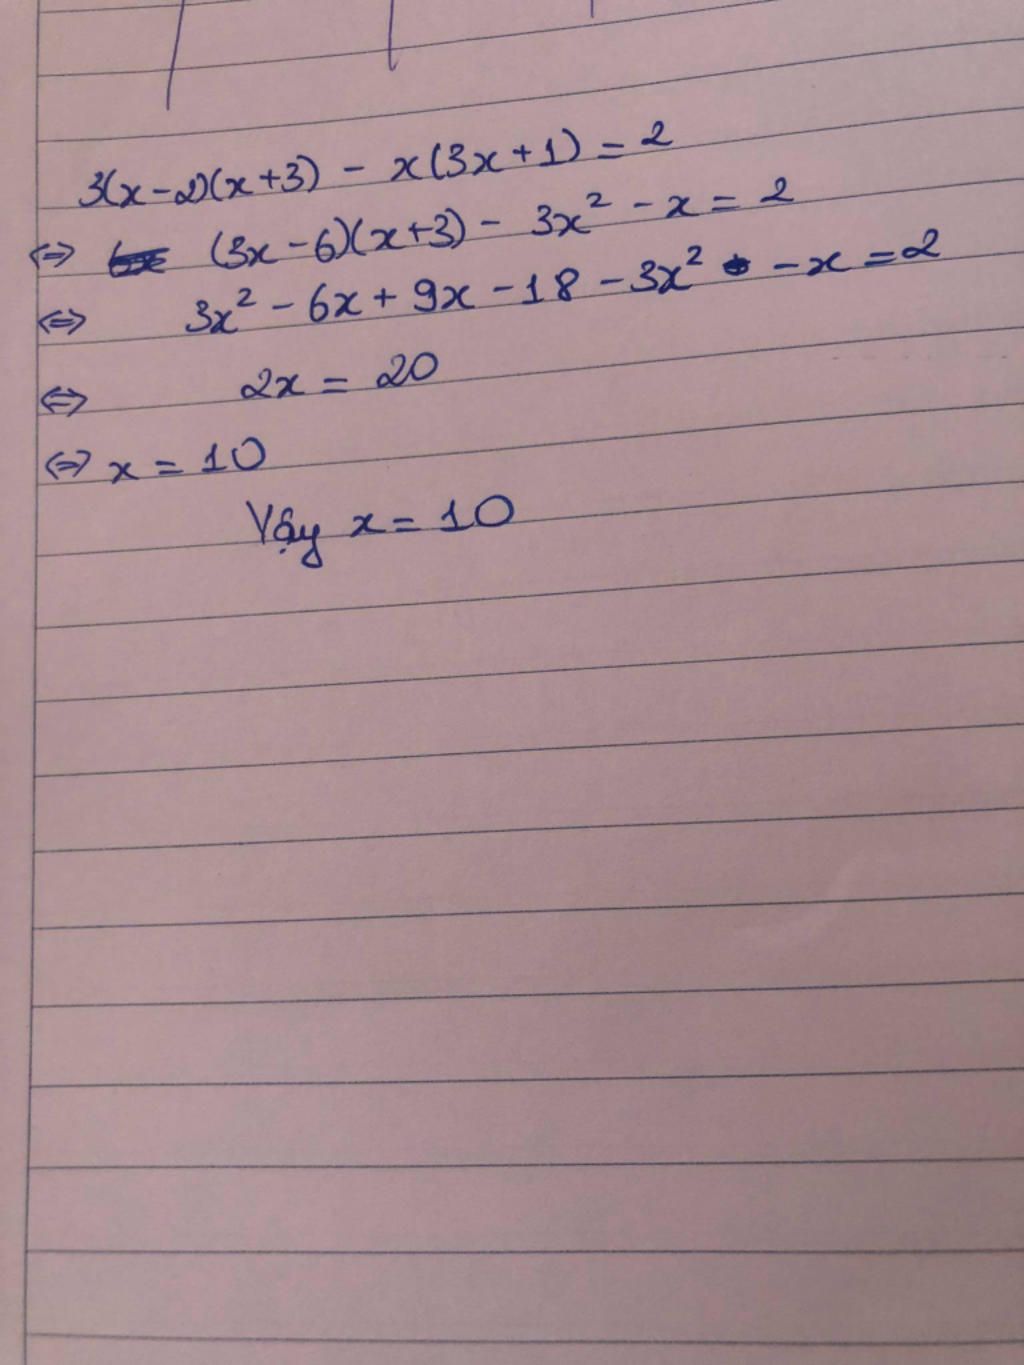 3(x-2)(x+3) - x(3x+1) = 2
⇔ (3x-6)(x+3) - 3x² - x = 2
⇔ 3x² - 6x + 9x - 18 - 3x² - x = 2
⇔ 2x = 20
⇔ x = 10
Vậy x = 10